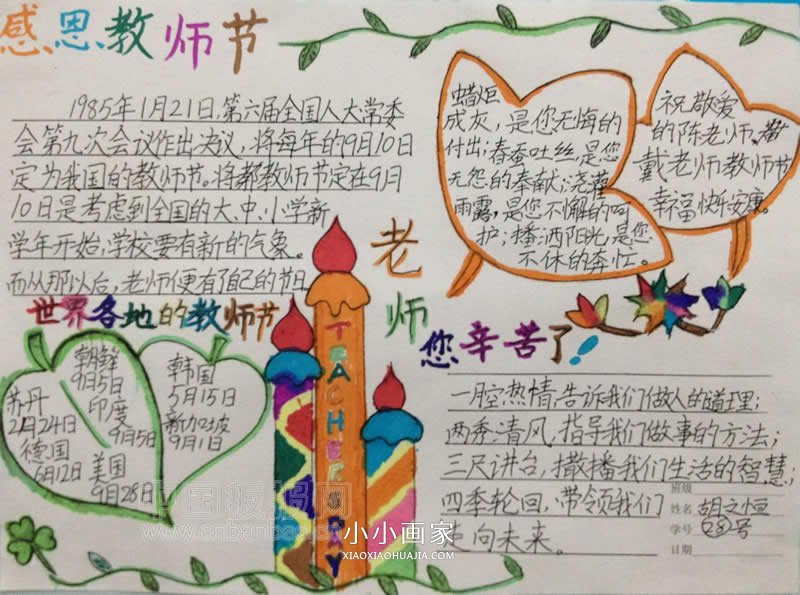 感恩教师节
1985年1月21日,第六届全国人大常委
会第九次会议作出决议,将每年的9月10日
定为我国的教师节。将都教师节定在9月
10日是考虑到全国的大、中、小学新
学年开始,学校要有新的气象。
而从那以后,老师便有了自己的节日
蜡炬
成灰,是您无悔的
付出;春蚕吐丝,是您
无怨的奉献;浇灌
雨露,是您不懈的呵
护;播洒阳光,是您
不休的奔忙。
祝敬爱
的陈老师、
戴老师教师节
幸福快乐安康。
老师
您辛苦了!
世界各地的教师节
朝鲜
9月5日
苏丹
2月24日
印度
9月5日
德国
6月12日
美国
9月28日
韩国
5月15日
新加坡
9月1日
TEACHER'S
一腔热情,告诉我们做人的道理;
两季清风,指导我们做事的方法;
三尺讲台,撒播我们生活的智慧;
四季轮回,带领我们
走向未来。
班级
姓名 胡之恒
学号
日期
中国板报网
www.cnbanbao.cn
小小画家
XIAOXIAOHUAJIA.COM